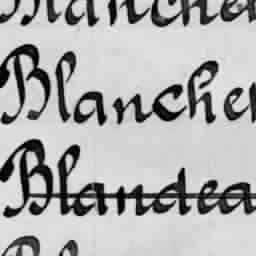 Blancher
Blancher
Blandea
Bl